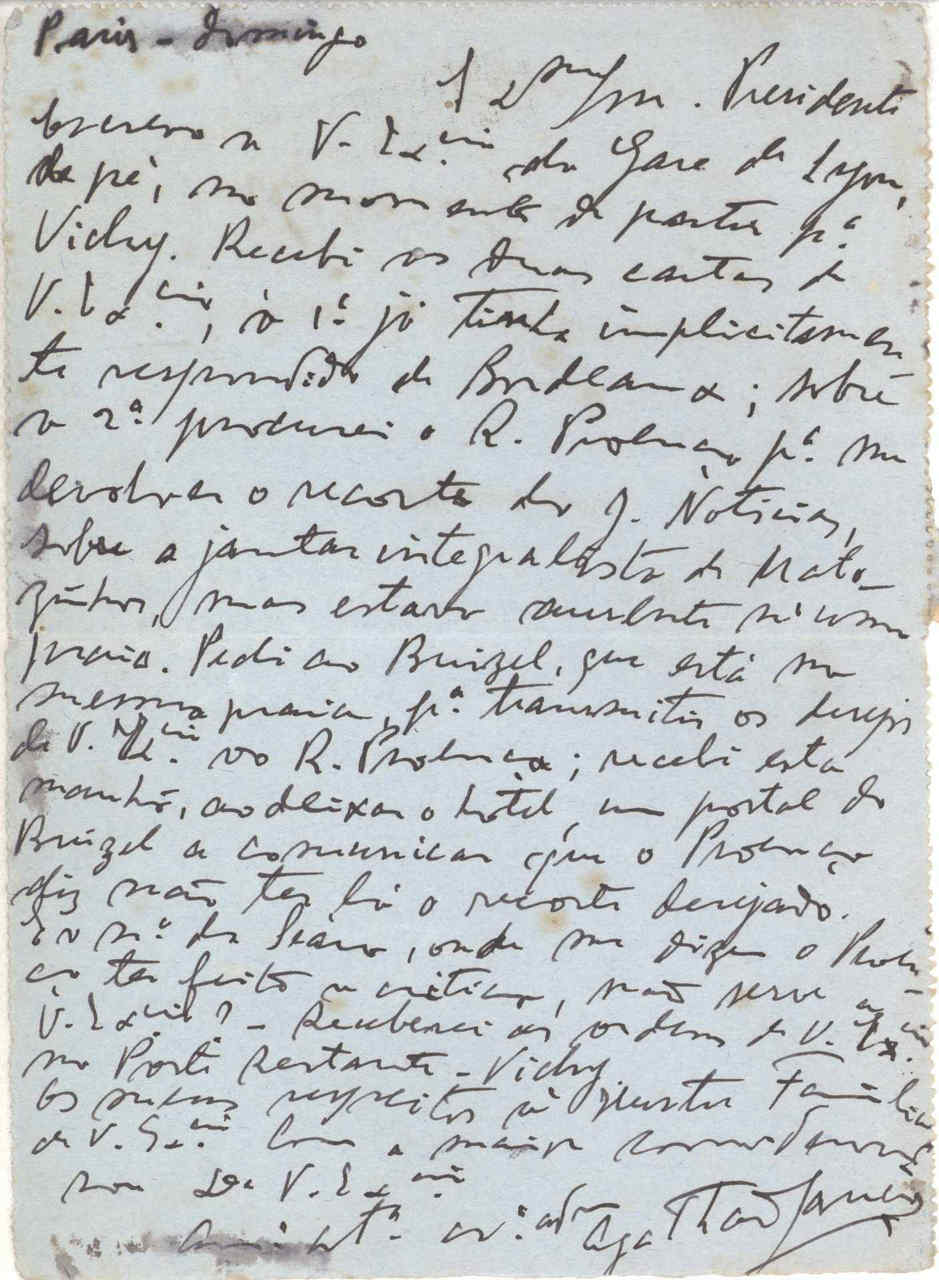 Paris - domingo
Snr. Presidente
Escrevo a V. Ex.cia da Gare de Lyon,
de pé, no momento de partir p.ª
Vichy. Recebi as duas cartas de
V. Ex.cia, à 1.ª já tinha implicitamen
te respondido de Bordeaux; sobre
a 2.ª procurei o R. Proença p.ª me
devolver o recorte do J. Noticias,
sobre o jantar integralista de Mato-
zinhos, mas estava ausente n'uma
praia. Pedi ao Bruizel, que está na
mesma praia, p.ª transmitir os desejos
de V. Ex.cia ao R. Proença; recebi esta
manhã, ao deixar o hotel, um postal do
Bruizel a comunicar que o Proença
diz não ter lá o recorte desejado.
E o n.º da Seara, onde me dizem o Proen-
ça ter feito a critica, não serve a
V. Ex.cia? - Receberei as ordens de V. Ex.cia
no Poste Restante - Vichy
Os meus respeitos à Familia
de V. Ex.cia Com a maior consideração
sou De V. Ex.cia
am.º at.º